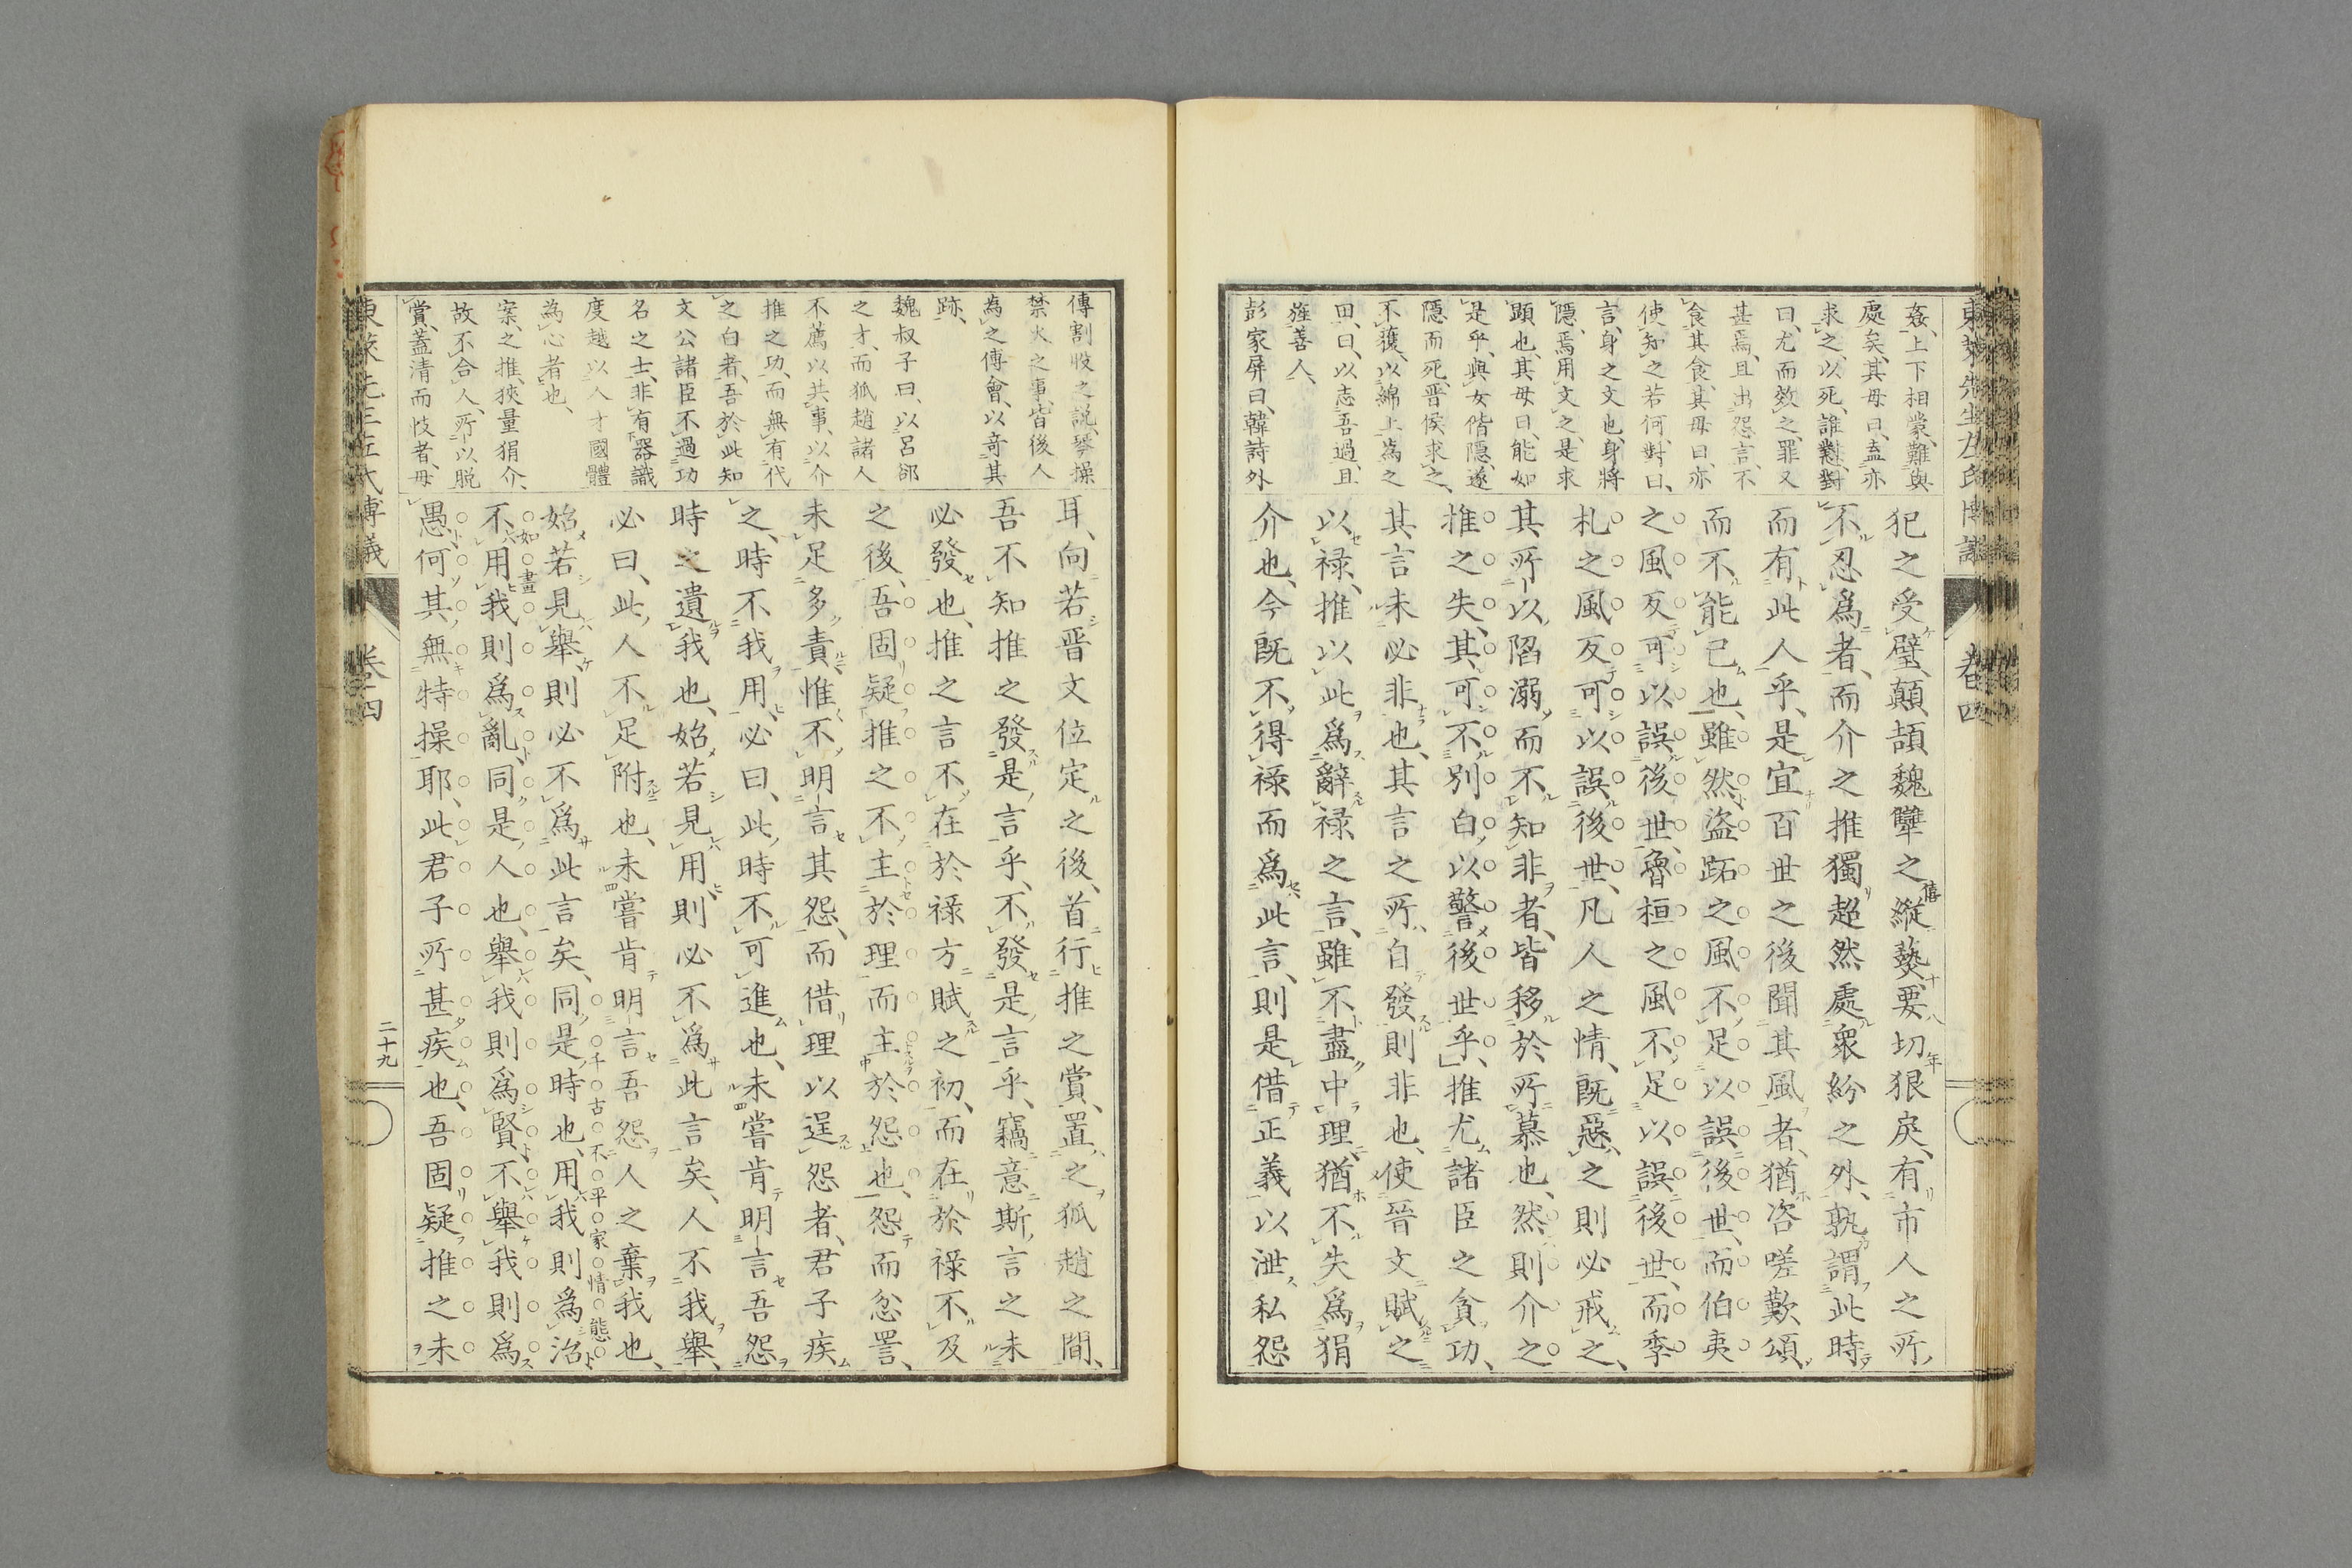 東萊先生左氏博議
卷四
姦、上下相蒙、難與
處矣、其母曰、盍亦
求之、以死、誰懟、對
曰、尤而效之、罪又
甚焉、且出怨言、不
食其食、其母曰、亦
使知之若何、對曰、
言、身之文也、身將
隱、焉用文之、是求
顯也、其母曰、能如
是乎、與女偕隱、遂
隱而死、晋侯求之、
不獲、以綿上爲之
田、曰、以志吾過、且
旌善人、
彭家屏曰、韓詩外
犯之受璧、顛頡魏犫之縱爇、要切狠戾、有市人之所
不忍爲者、而介之推獨超然處衆紛之外、孰謂此時
而有此人乎、是宜百世之後聞其風者、猶咨嗟歎頌、
而不能已也、雖然盜跖之風不足以誤後世、而伯夷
之風反可以誤後世、魯桓之風不足以誤後世、而季
札之風反可以誤後世、凡人之情、旣惡之則必戒之、
其所以陷溺而不知非者、皆移於所慕也、然則介之
推之失、其可不別白以警後世乎、推尤諸臣之貪功、
其言未必非也、其言之所自發則非也、使晉文賦之
以祿、推以此爲辭祿之言、雖不盡中理、猶不失爲狷
介也、今旣不得祿而爲此言、則是借正義以泄私怨
傳割股之説、琴操
禁火之事、皆後人
爲之傳會、以竒其
跡、
魏叔子曰、以呂郤
之才、而狐趙諸人
不薦以共事、以介
推之功、而無有代
之白者、吾於此知
文公諸臣不過功
名之士、非有器識
度越以人才國體
爲心者也、
案、之推、狹量狷介、
故不合人、所以脱
賞、蓋清而忮者、毋
耳、向若晋文位定之後、首行推之賞、置之狐趙之間、
吾不知推之發是言乎、不發是言乎、竊意斯言之未
必發也、推之言不在於祿方賦之初、而在於祿不及
之後、吾固疑推之不主於理而主於怨也、怨而忿詈、
未足多責、惟不明言其怨、而借理以逞怨者、君子疾
之、時不我用、必曰、此時不可進也、未嘗肯明言吾怨
時之遺我也、始若見用、則必不爲此言矣、人不我舉、
必曰、此人不足附也、未嘗肯明言吾怨人之棄我也、
始若見舉、則必不爲此言矣、同是時也、用我則爲治、
不用我則爲亂、同是人也、舉我則爲賢、不舉我則爲
愚、何其無特操耶、此君子所甚疾也、吾固疑推之未
如畫
千古不平家情態
東萊先生左氏博議
卷四
二十九